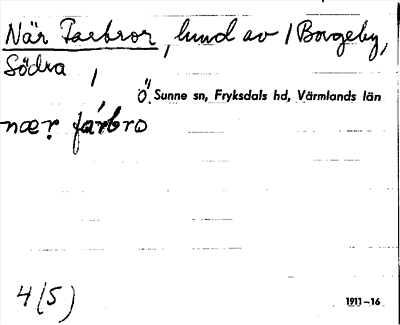 När Farbror, hund av / Borgeby,
Södra,
Ö. Sunne sn, Fryksdals hd, Värmlands län
næ̣r fárbro
4 (5)
1911–16